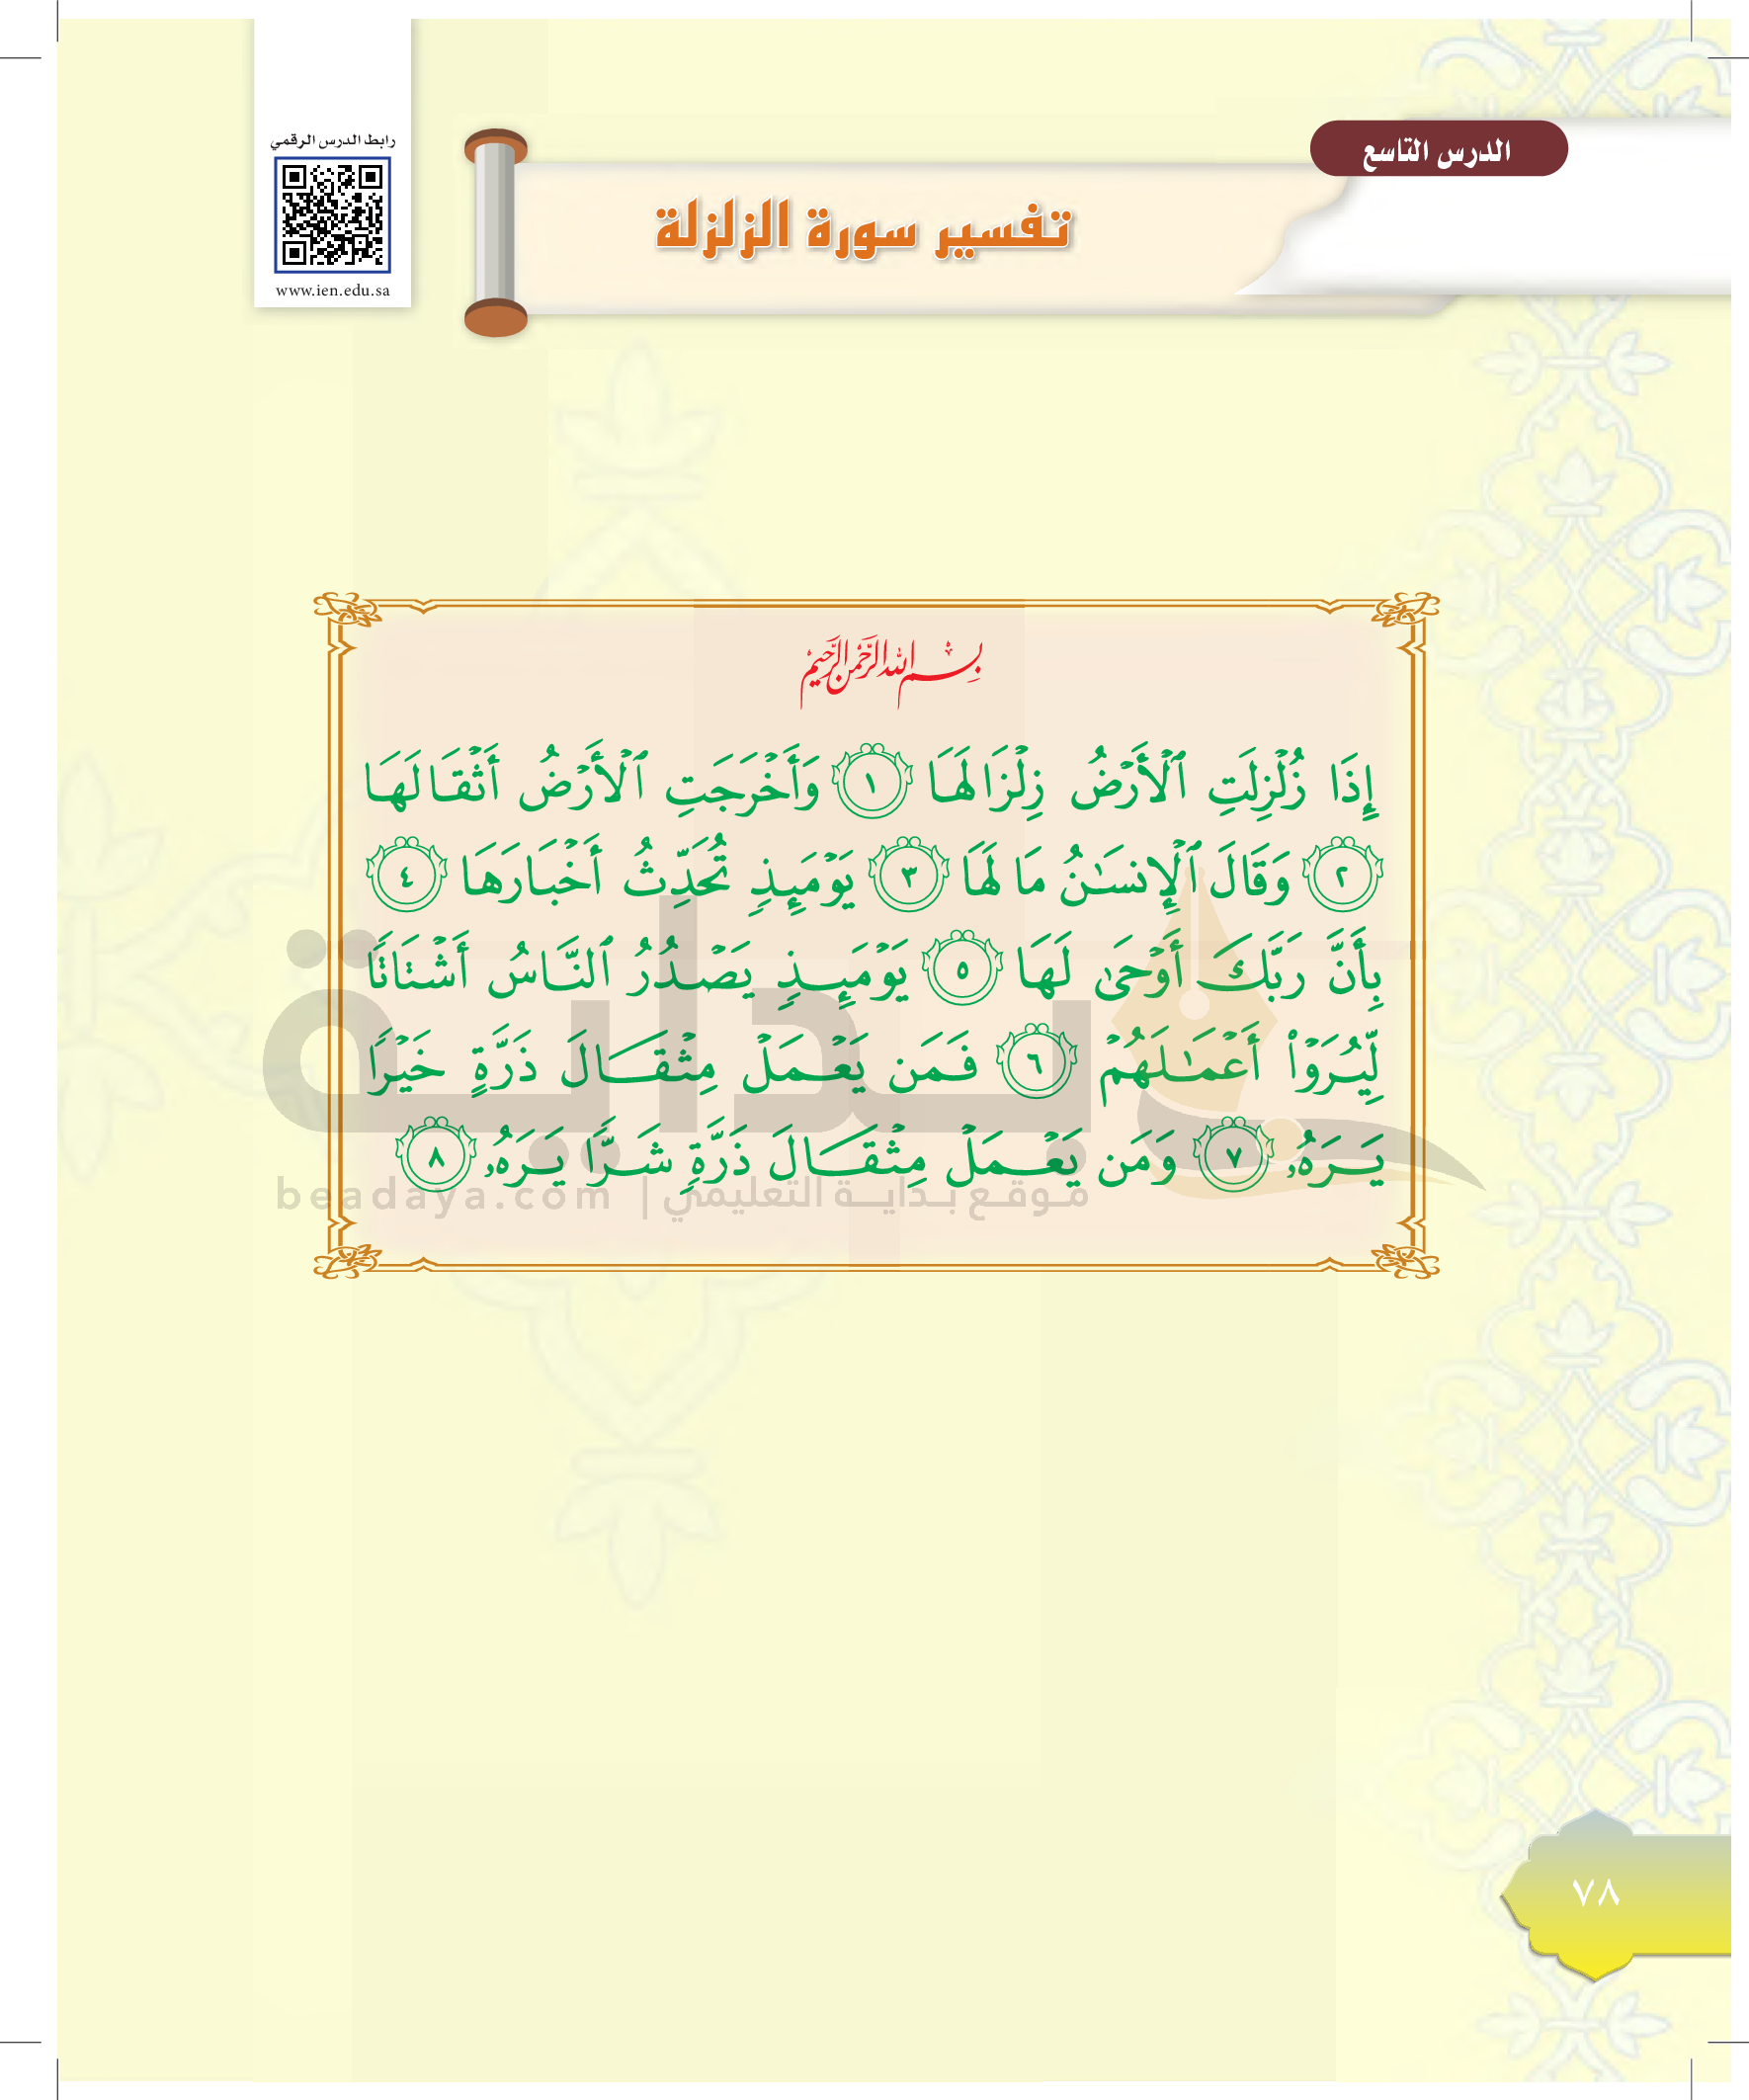 الدرس التاسع
رابط الدرس الرقمي
تفسير سورة الزلزلة
www.ien.edu.sa
بِسْمِ اللَّهِ الرَّحْمَٰنِ الرَّحِيمِ
إِذَا زُلۡزِلَتِ ٱلۡأَرۡضُ زِلۡزَالَهَا ١ وَأَخۡرَجَتِ ٱلۡأَرۡضُ أَثۡقَالَهَا
٢ وَقَالَ ٱلۡإِنسَٰنُ مَا لَهَا ٣ يَوۡمَئِذٖ تُحَدِّثُ أَخۡبَارَهَا ٤
بِأَنَّ رَبَّكَ أَوۡحَىٰ لَهَا ٥ يَوۡمَئِذٖ يَصۡدُرُ ٱلنَّاسُ أَشۡتَاتٗا
لِّيُرَوۡاْ أَعۡمَٰلَهُمۡ ٦ فَمَن يَعۡمَلۡ مِثۡقَالَ ذَرَّةٍ خَيۡرٗا
يَرَهُۥ ٧ وَمَن يَعۡمَلۡ مِثۡقَالَ ذَرَّةٖ شَرّٗا يَرَهُۥ ٨
بداية
موقع بداية التعليمي | beadaya.com
٧٨